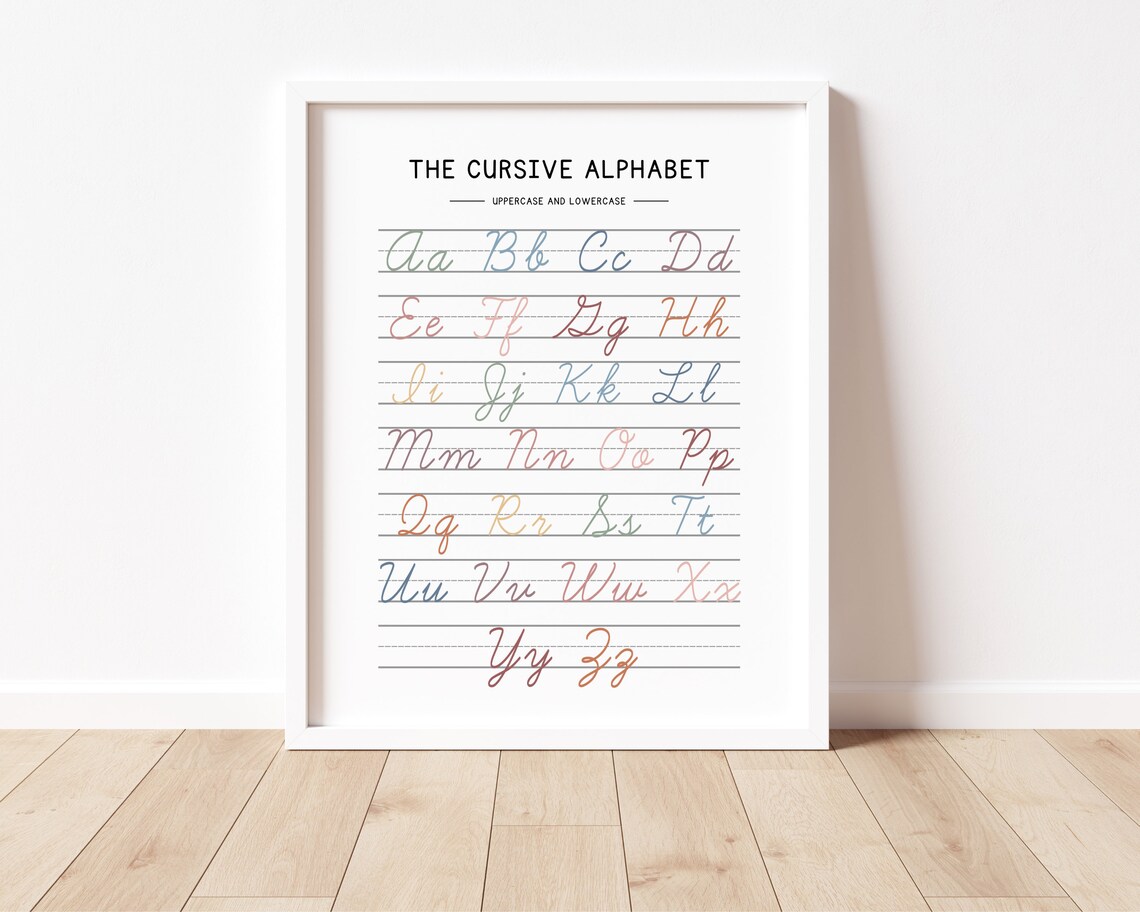 THE CURSIVE ALPHABET
UPPERCASE AND LOWERCASE
Aa Bb Cc Dd
Ee Ff Gg Hh
Ii Jj Kk Ll
Mm Nn Oo Pp
Qq Rr Ss Tt
Uu Vv Ww Xx
Yy Zz